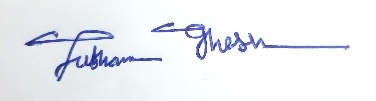 Subham Ghosh